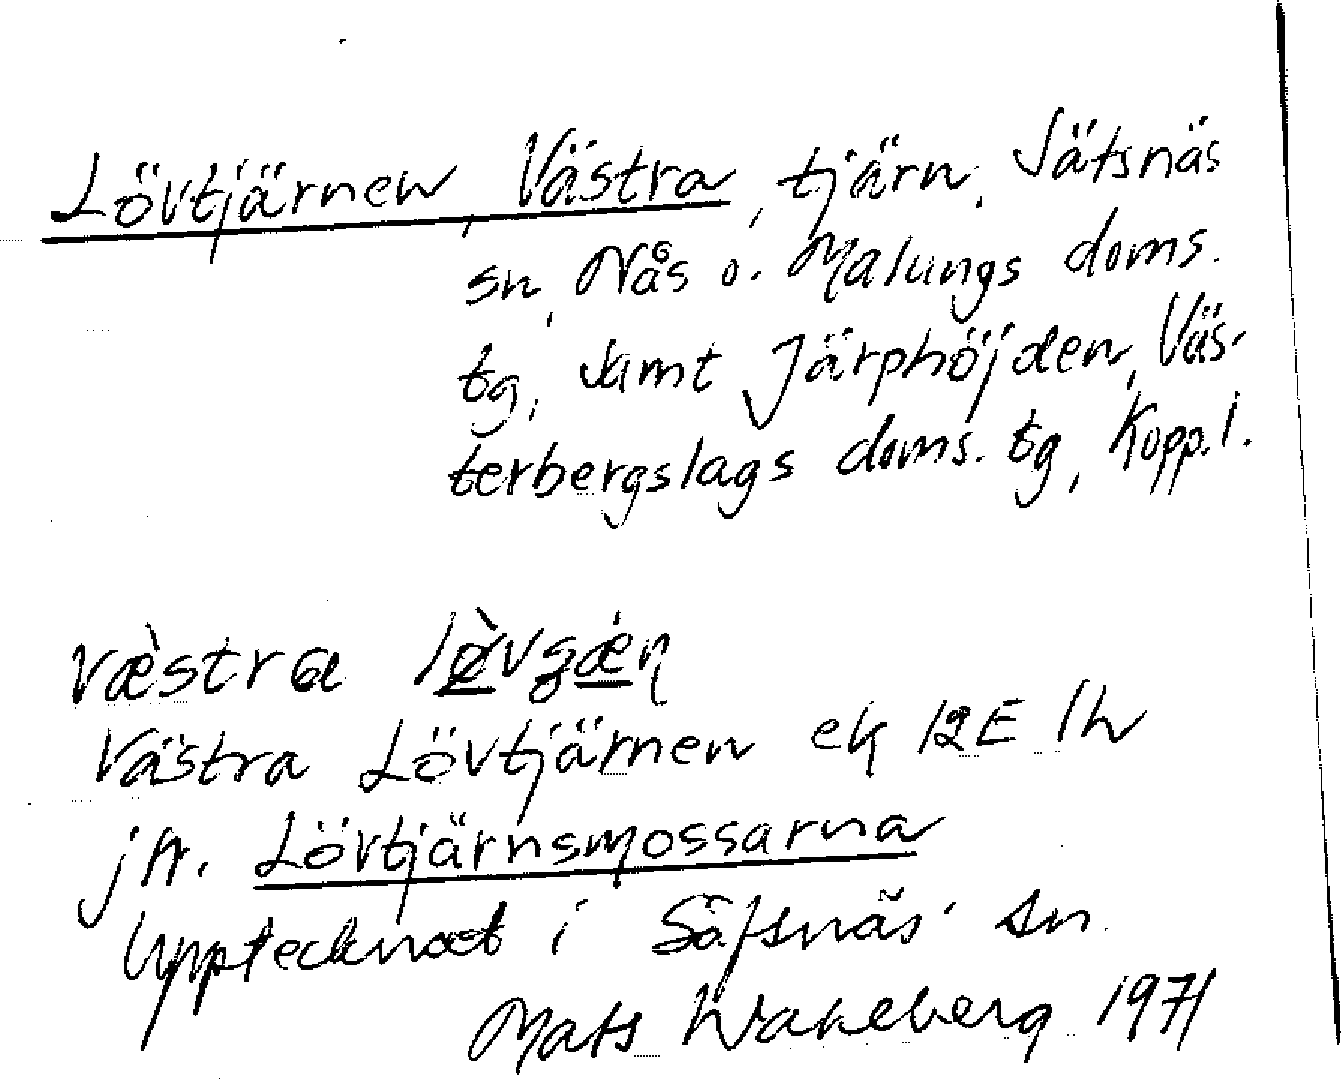 Lövtjärnen, Västra, tjärn, Säfsnäs
sn, Nås o. Malungs doms.
tg, samt Järphöjden, Väs-
terbergslags doms. tg, Kopp. l.
væ̀stra lø̀vʒæ̇n
Västra Lövtjärnen ek 12E 1h
jfr. Lövtjärnsmossarna
Upptecknat i Säfsnäs sn
Mats 1971